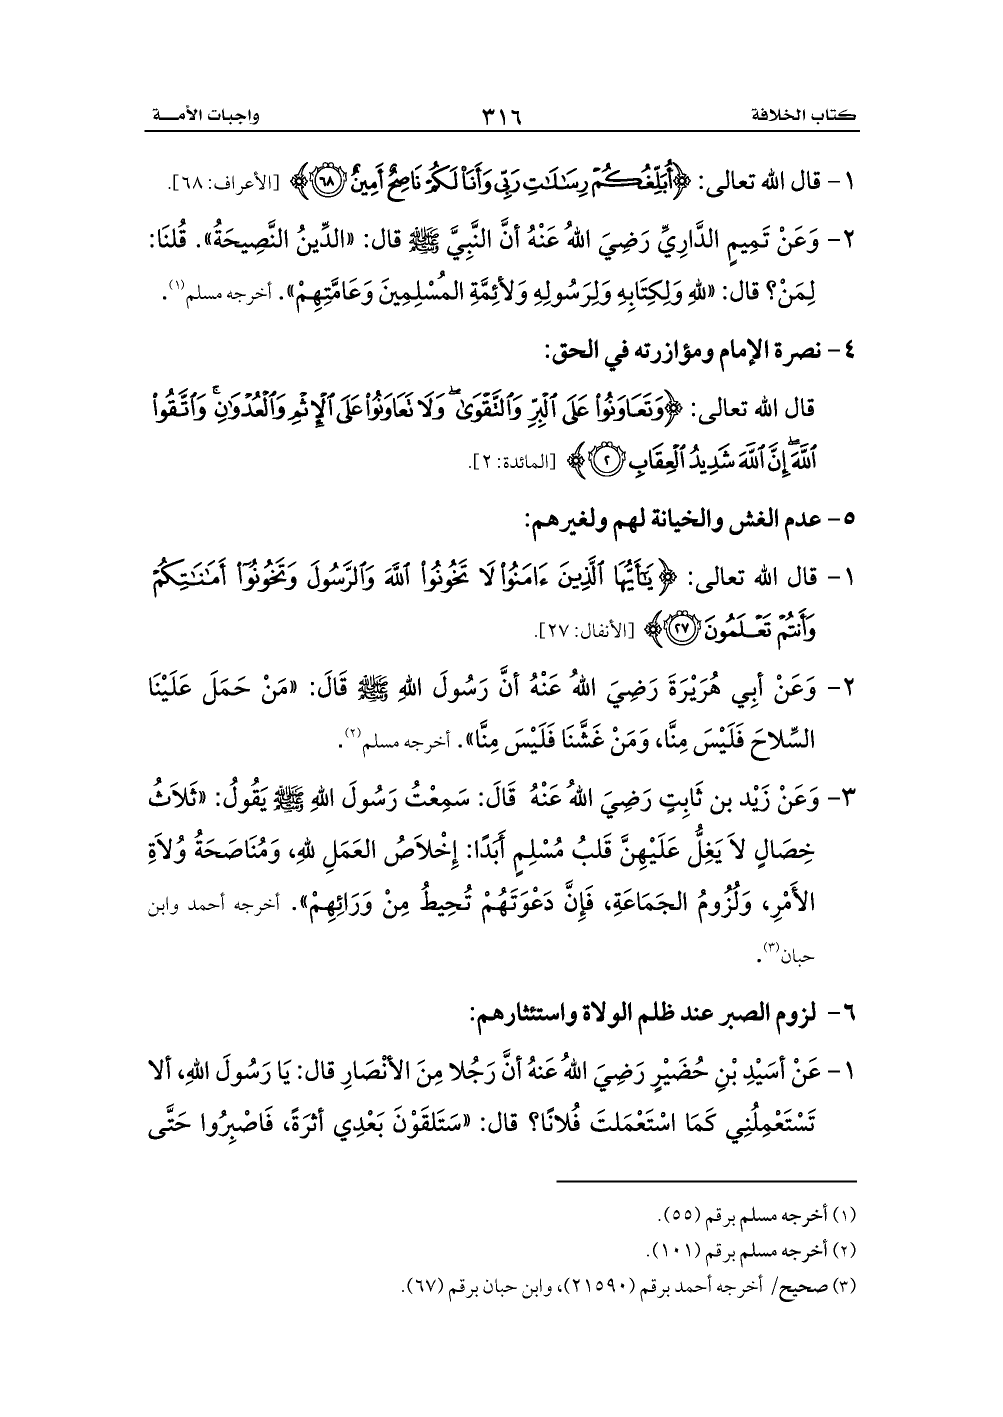 كتاب الخلافة ٣١٦ واجبات الأمـــة
١- قال الله تعالى: ﴿أُبَلِّغُكُمْ رِسَٰلَٰتِ رَبِّي وَأَنَا۠ لَكُمْ نَاصِحٌ أَمِينٌ ۝٦٨﴾ [الأعراف: ٦٨].
٢- وَعَنْ تَمِيمٍ الدَّارِيِّ رَضِيَ اللهُ عَنْهُ أنَّ النَّبِيَّ ﷺ قال: «الدِّينُ النَّصِيحَةُ». قُلنَا:
لِمَنْ؟ قال: «للهِ وَلِكِتَابِهِ وَلِرَسُولِهِ وَلأئِمَّةِ المُسْلِمِينَ وَعَامَّتِهِمْ». أخرجه مسلم(١).
٤- نصرة الإمام ومؤازرته في الحق:
قال الله تعالى: ﴿وَتَعَاوَنُوا۟ عَلَى ٱلْبِرِّ وَٱلتَّقْوَىٰ ۖ وَلَا تَعَاوَنُوا۟ عَلَى ٱلْإِثْمِ وَٱلْعُدْوَٰنِ ۚ وَٱتَّقُوا۟
ٱللَّهَ ۖ إِنَّ ٱللَّهَ شَدِيدُ ٱلْعِقَابِ ۝٢﴾ [المائدة: ٢].
٥- عدم الغش والخيانة لهم ولغيرهم:
١- قال الله تعالى: ﴿يَٰٓأَيُّهَا ٱلَّذِينَ ءَامَنُوا۟ لَا تَخُونُوا۟ ٱللَّهَ وَٱلرَّسُولَ وَتَخُونُوٓا۟ أَمَٰنَٰتِكُمْ
وَأَنتُمْ تَعْلَمُونَ ۝٢٧﴾ [الأنفال: ٢٧].
٢- وَعَنْ أبِي هُرَيْرَةَ رَضِيَ اللهُ عَنْهُ أنَّ رَسُولَ اللهِ ﷺ قَالَ: «مَنْ حَمَلَ عَلَيْنَا
السِّلاحَ فَلَيْسَ مِنَّا، وَمَنْ غَشَّنَا فَلَيْسَ مِنَّا». أخرجه مسلم(٢).
٣- وَعَنْ زَيْد بن ثَابِتٍ رَضِيَ اللهُ عَنْهُ قَالَ: سَمِعْتُ رَسُولَ اللهِ ﷺ يَقُولُ: «ثَلاَثُ
خِصَالٍ لاَ يَغِلُّ عَلَيْهِنَّ قَلبُ مُسْلِمٍ أبَدًا: إخْلاَصُ العَمَلِ للهِ، وَمُنَاصَحَةُ وُلاَةِ
الأَمْرِ، وَلُزُومُ الجَمَاعَةِ، فَإنَّ دَعْوَتَهُمْ تُحِيطُ مِنْ وَرَائِهِمْ». أخرجه أحمد وابن
حبان(٣).
٦- لزوم الصبر عند ظلم الولاة واستئثارهم:
١- عَنْ أسَيْدِ بْنِ حُضَيْرٍ رَضِيَ اللهُ عَنهُ أنَّ رَجُلا مِنَ الأنْصَارِ قال: يَا رَسُولَ اللهِ، ألا
تَسْتَعْمِلُنِي كَمَا اسْتَعْمَلتَ فُلانًا؟ قال: «سَتَلقَوْنَ بَعْدِي أثرَةً، فَاصْبِرُوا حَتَّى
(١) أخرجه مسلم برقم (٥٥).
(٢) أخرجه مسلم برقم (١٠١).
(٣) صحيح/ أخرجه أحمد برقم (٢١٥٩٠)، وابن حبان برقم (٦٧).